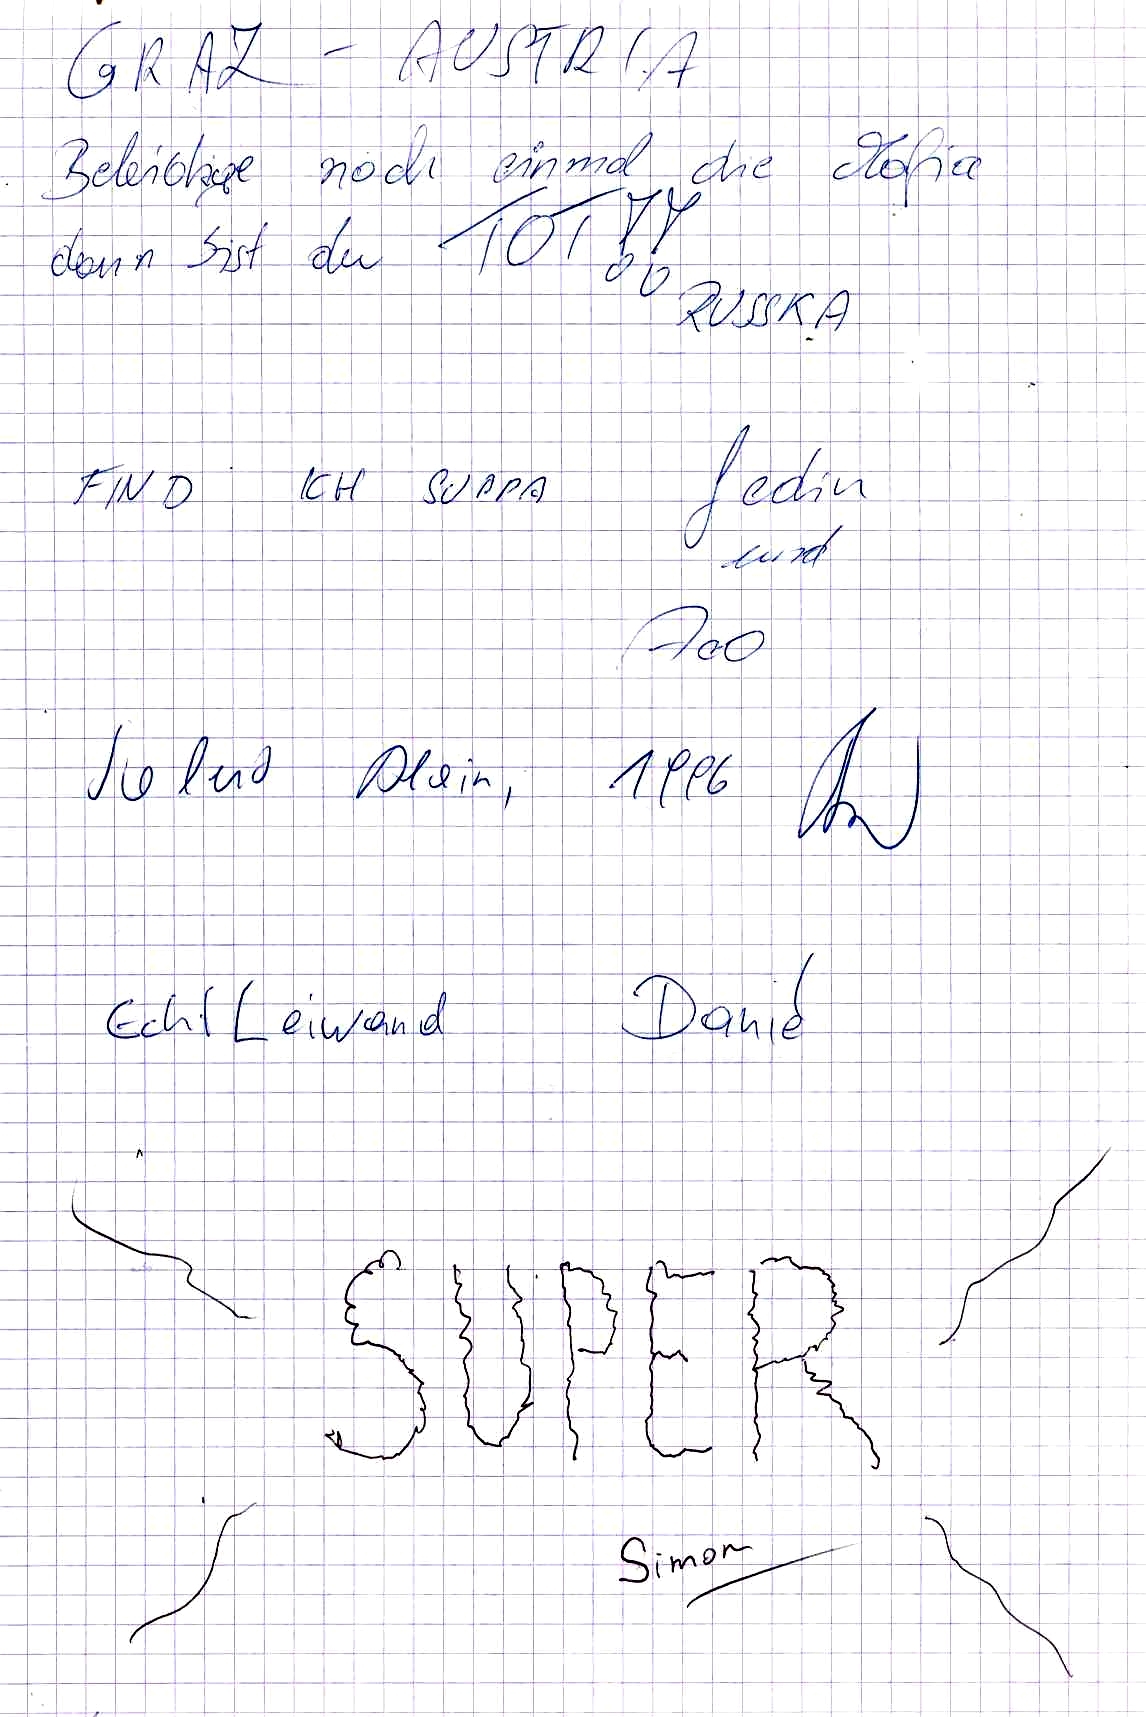 GRAZ - AUSTRIA
Beleidige noch einmal die Mafia
dann bist du TOT!!
RUSSKA
FIND ICH SUPPA
und
1996
Echt Leiwand Daniel
SUPER
Simon